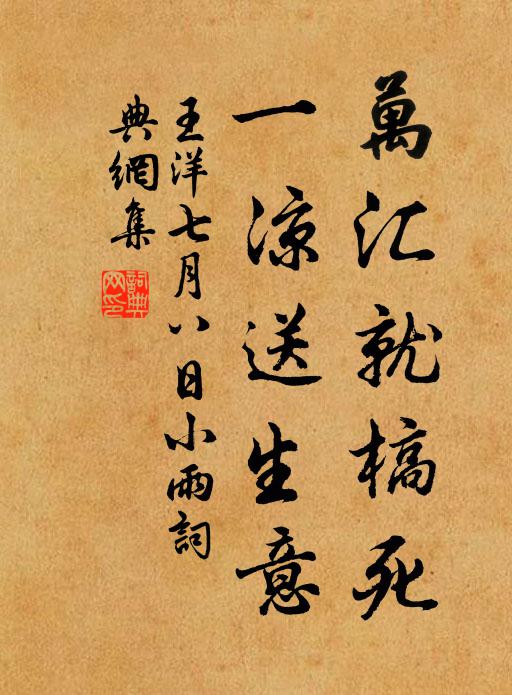 萬汇就槁死
一凉送生意
王洋七月八日小雨詞
典網集
詞典
网印